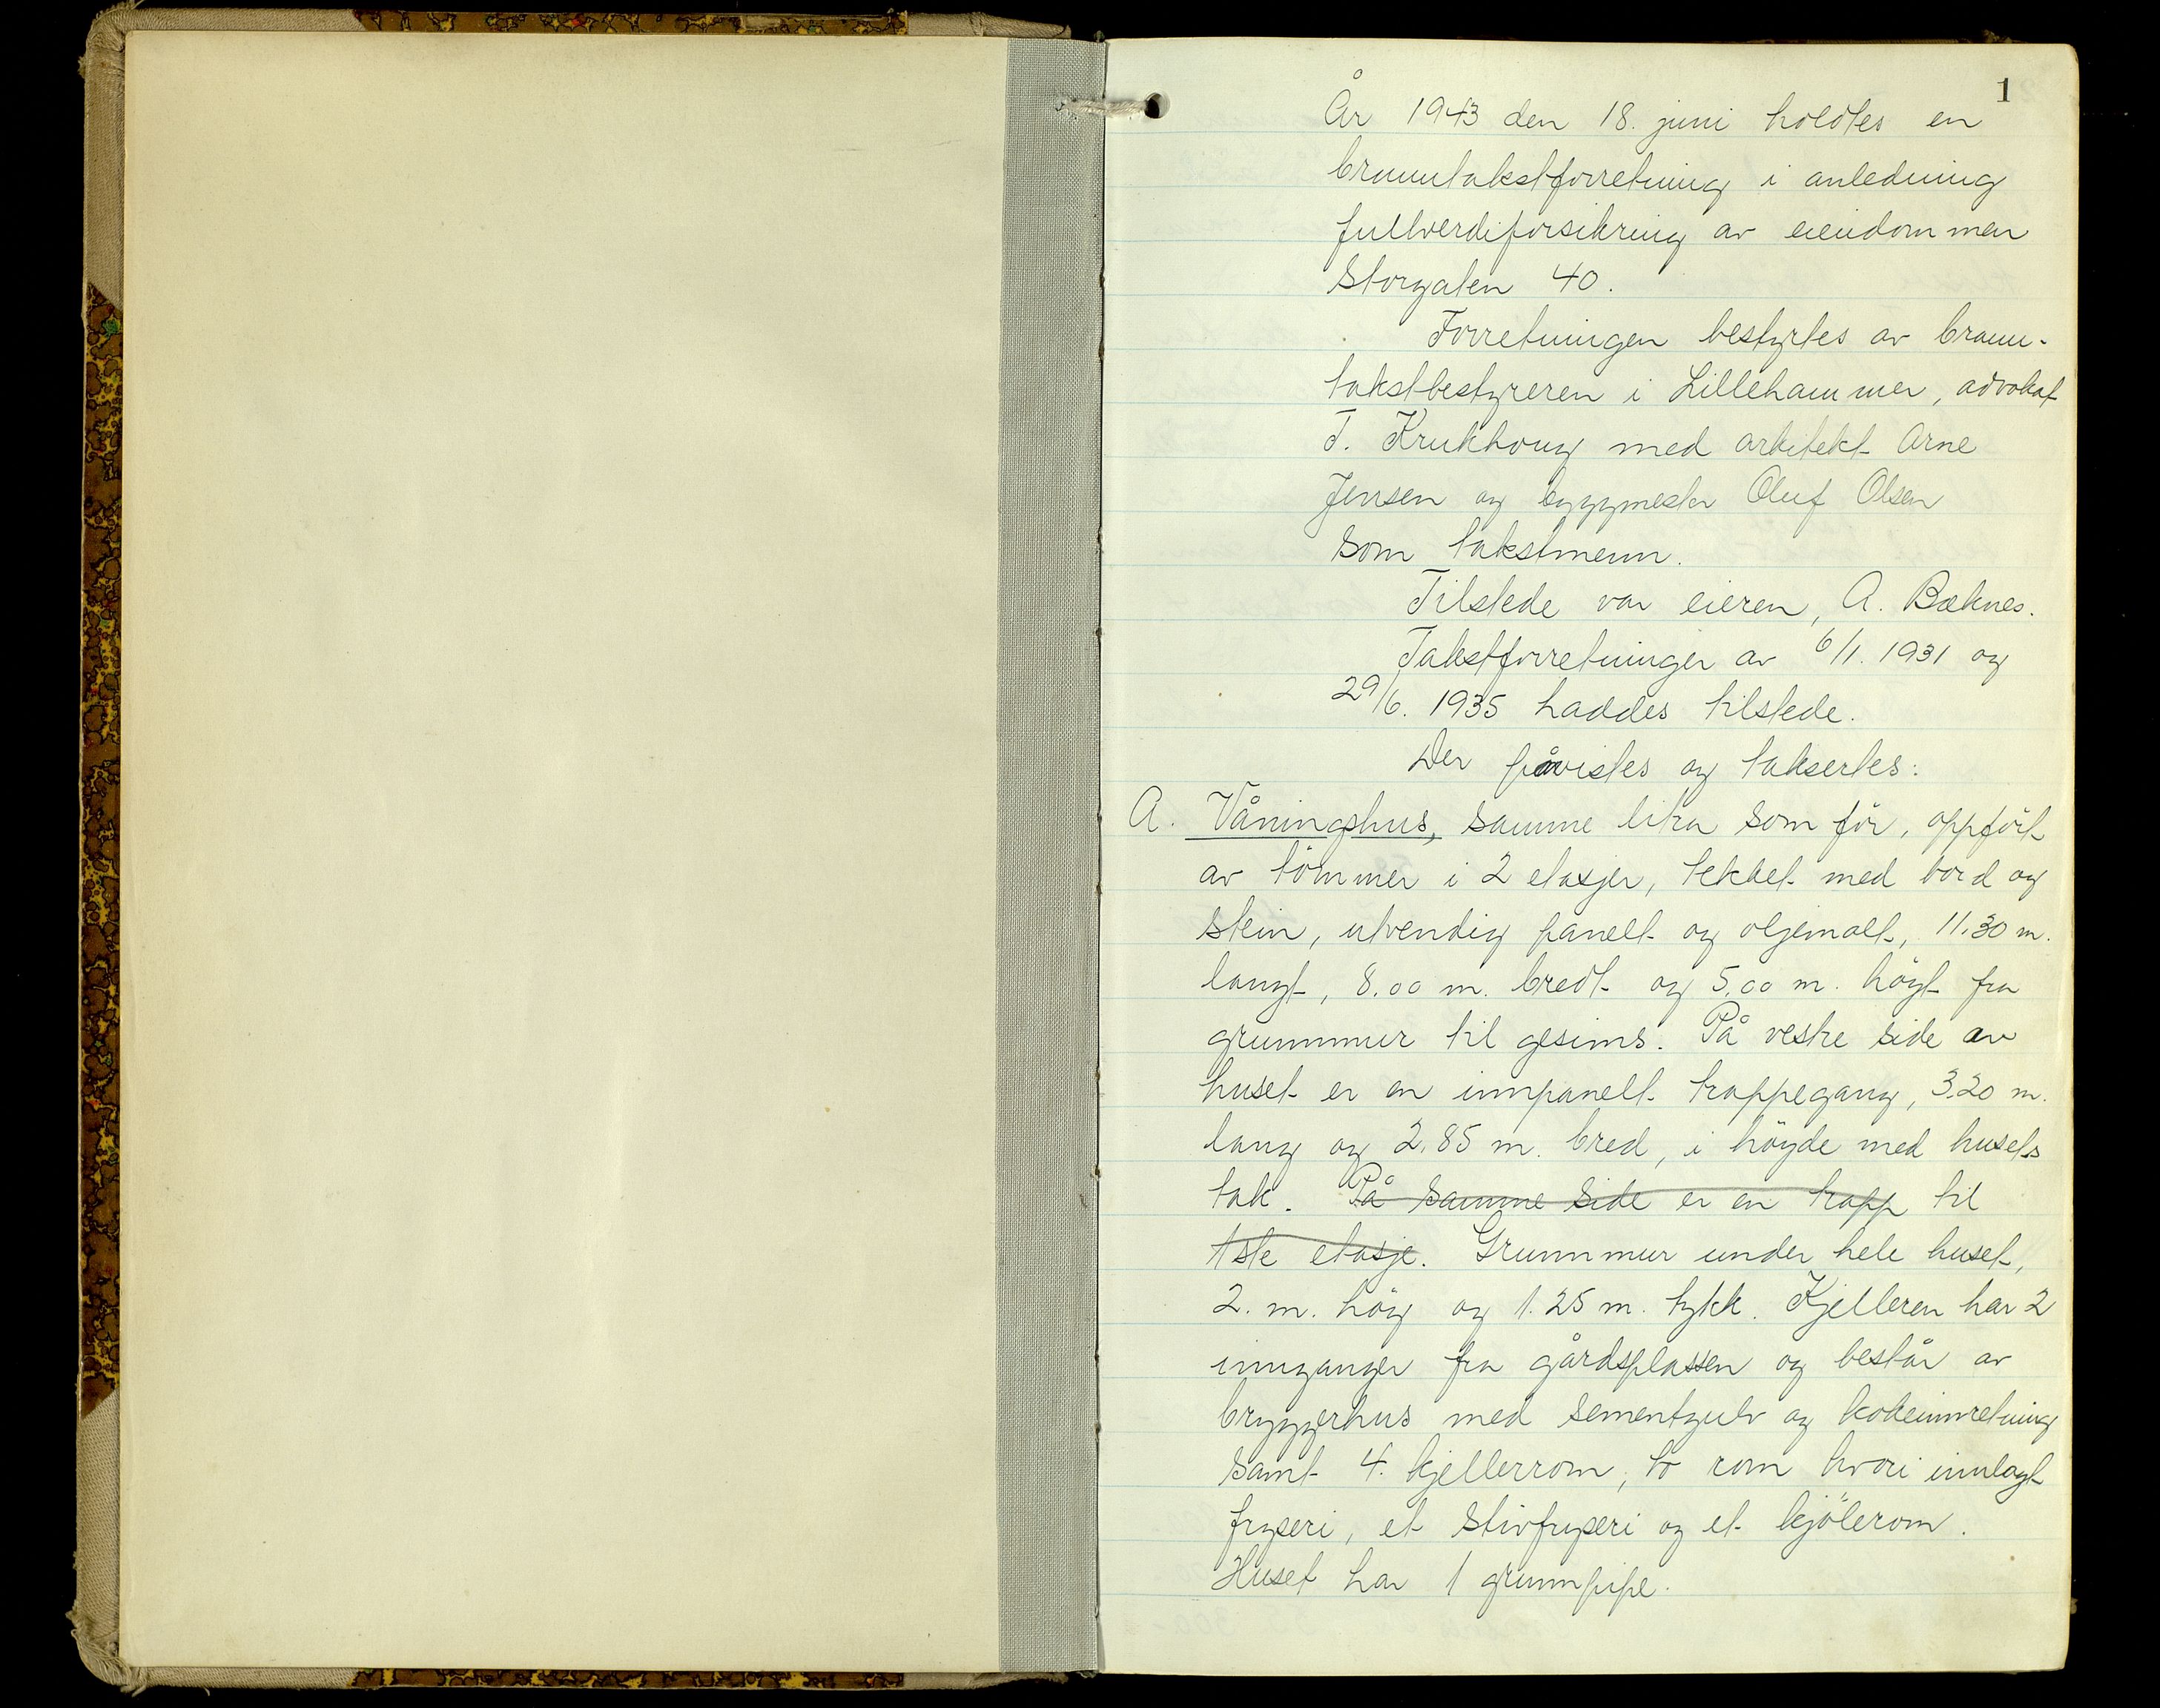 1
År 1943 den 18. juni holdtes en
branntakstforretning i anledning
fullverdiforsikring av eiendommen
Storgaten 40.
Forretningen bestyrtes av brann-
takstbestyreren i Lillehammer, advokat
T. Krukhoug med arkitekt Arne
Jensen og byggmester Oluf Olsen
som takstmenn.
Tilstede var eieren, A. Bæknes.
Takstforretninger av 6/1. 1931 og
29/6. 1935 haddes tilstede.
Der påvistes og taksertes:
A. Våningshus, samme litra som før, oppført
av tömmer i 2 etasjer, tekket med bord og
stein, utvendig panelt og oljemalt, 11.30 m.
langt, 8.00 m. bredt og 5.00 m. högt fra
grunnmur til gesims. På vestre side av
huset er en innpanelt trappegang, 3.20 m.
lang og 2.85 m. bred, i höyde med husets
tak. På samme side er en trapp til
1ste etasje. Grunnmur under hele huset,
2. m. höy og 1.25 m. tykk. Kjelleren har 2
innganger fra gårdsplassen og består av
bryggerhus med sementgulv og kokeinnretning
samt 4. kjellerrom, to rom hvori innlagt
fryseri, et stivfryseri og et kjölerom.
Huset har 1 grunnpipe.